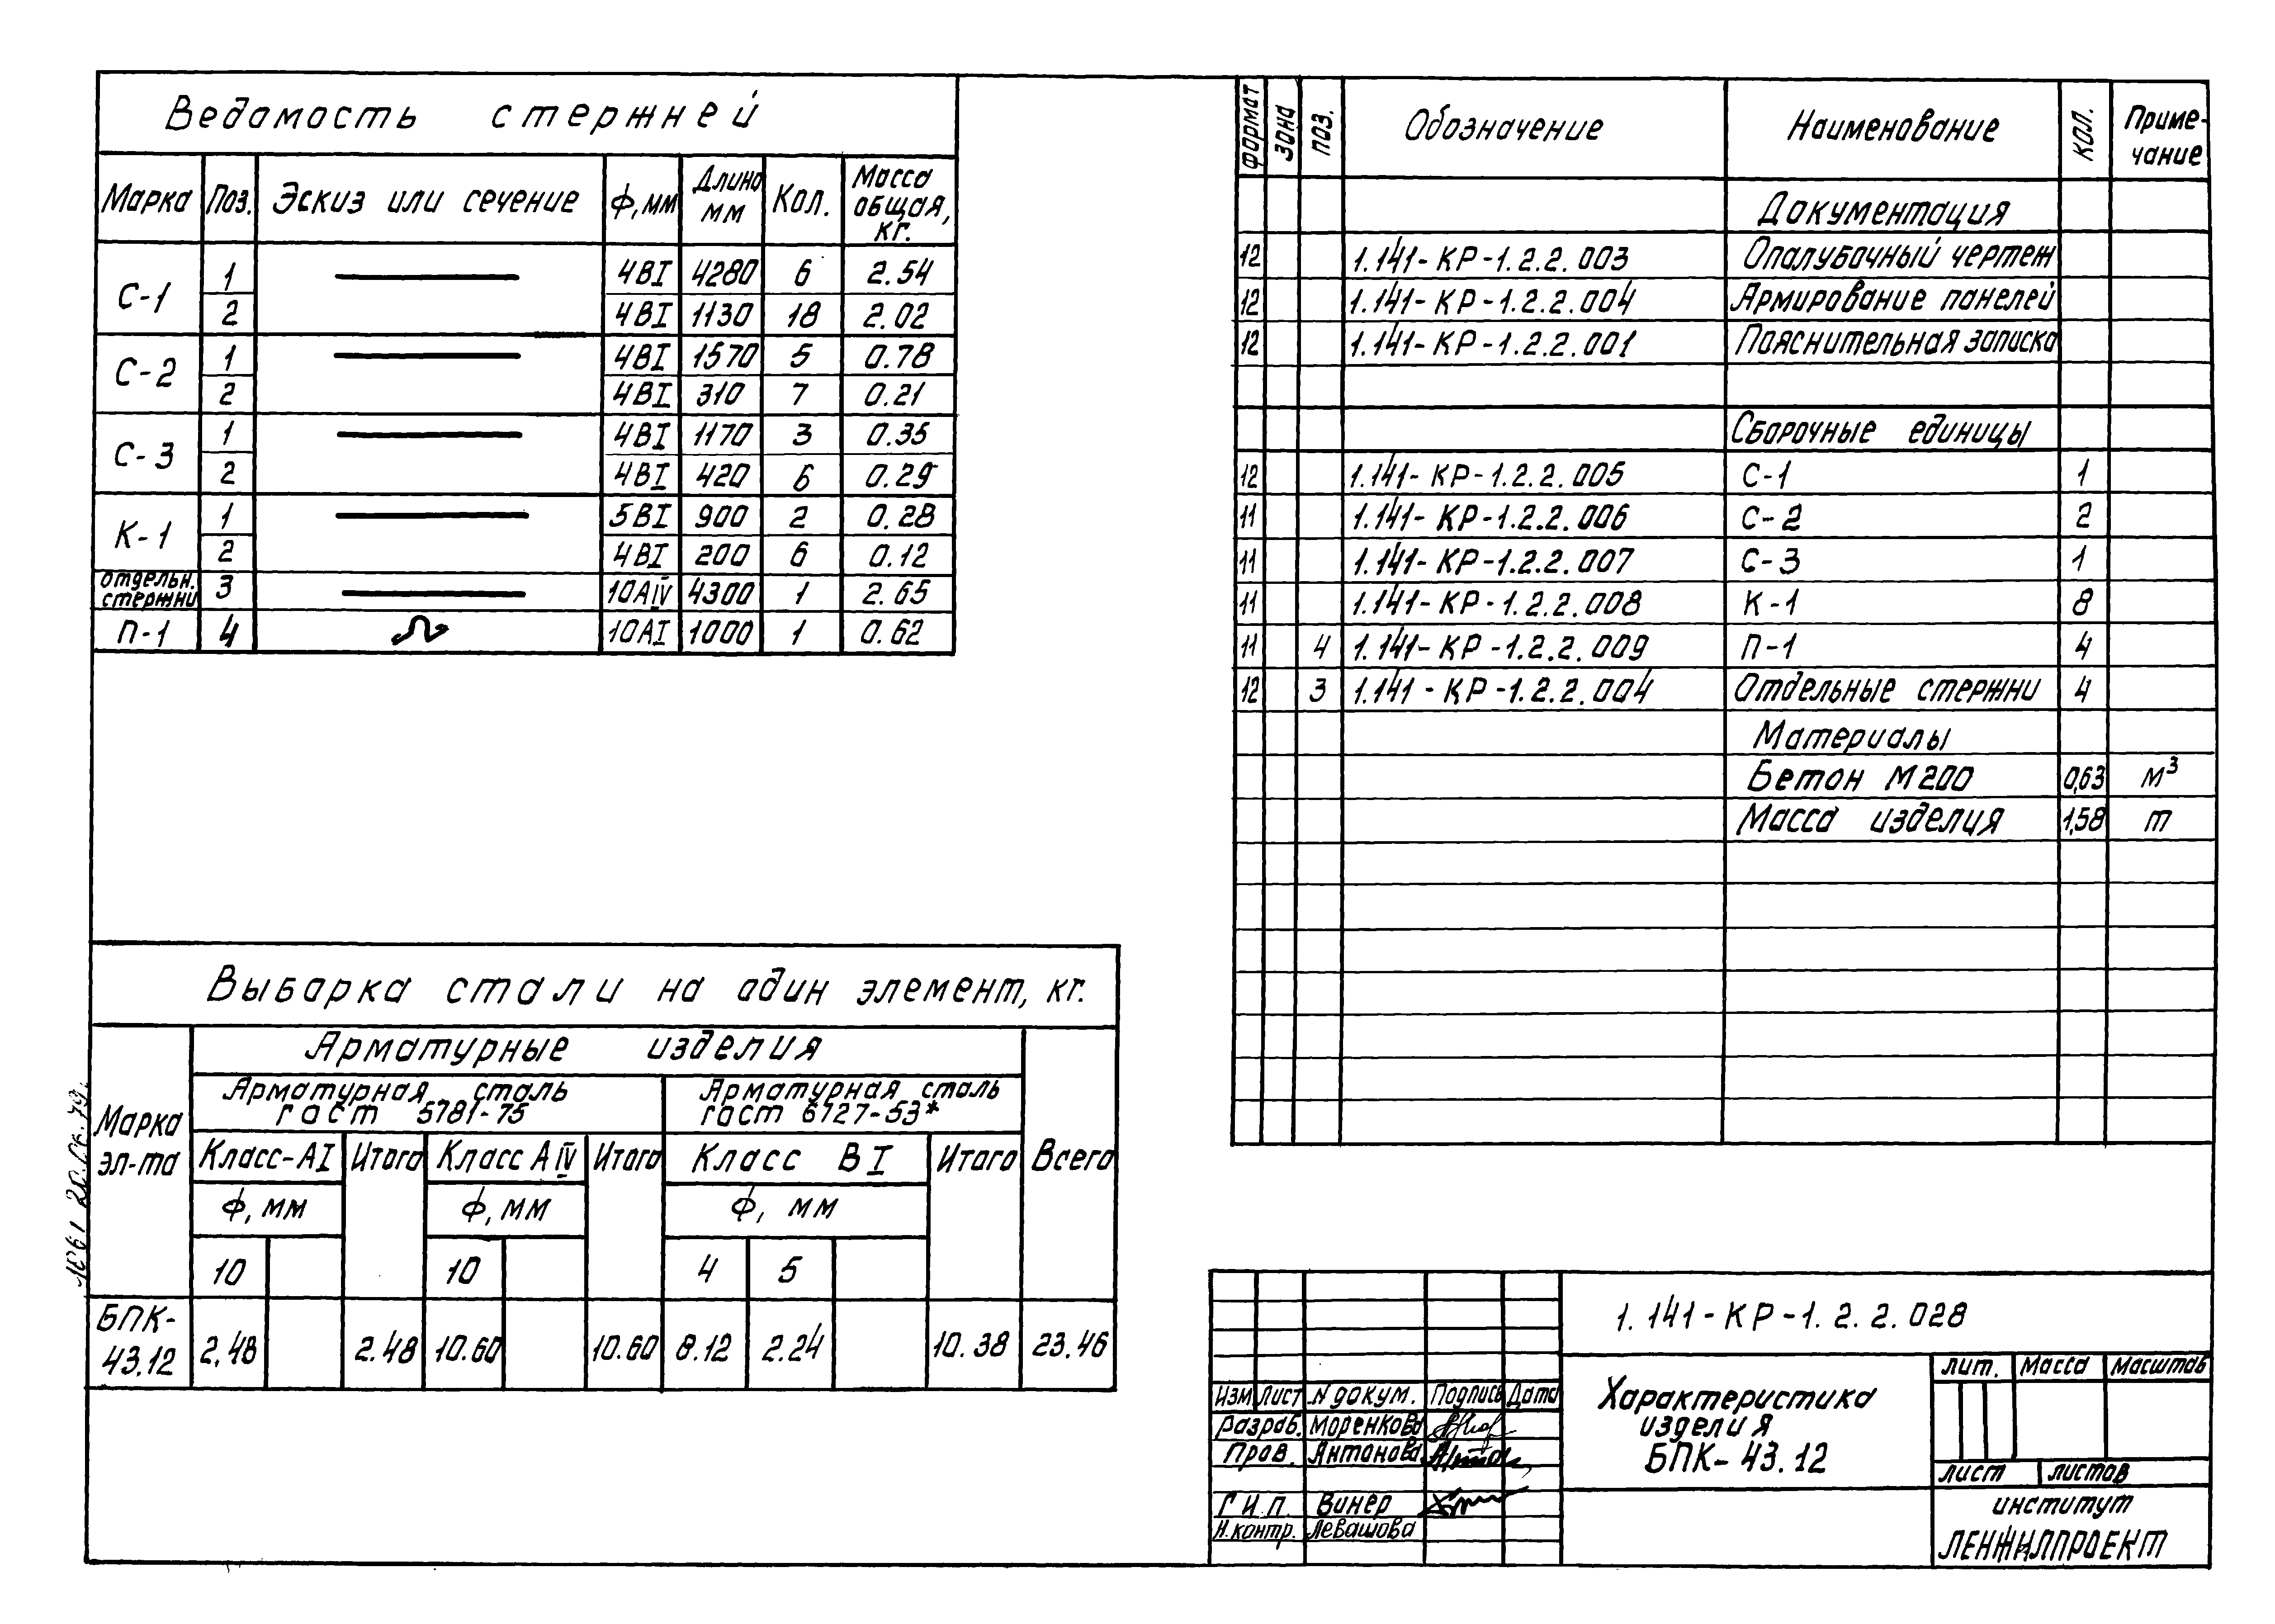 Ведомость стержней
Марка Поз. Эскиз или сечение ф,мм Длина мм Кол. Масса общая, кг.
С-1 1 4ВI 4280 6 2.54
2 4ВI 1130 18 2.02
С-2 1 4ВI 1570 5 0.78
2 4ВI 310 7 0.21
С-3 1 4ВI 1170 3 0.35
2 4ВI 420 6 0.29
К-1 1 5ВI 900 2 0.28
2 4ВI 200 6 0.12
отдельн. стержни 3 10АIV 4300 1 2.65
П-1 4 10АI 1000 1 0.62
Выборка стали на один элемент, кг.
Марка эл-та
Арматурные изделия
Всего
Арматурная сталь гост 5781-75
Арматурная сталь гост 6727-53*
Класс-АI Итого Класс АIV Итого Класс ВI Итого
ф, мм ф, мм ф, мм
10 10 4 5
БПК-43.12 2.48 2.48 10.60 10.60 8.12 2.24 10.38 23.46
формат зона поз. Обозначение Наименование кол. Приме-чание
Документация
12 1.141-КР-1.2.2.003 Опалубочный чертеж
12 1.141-КР-1.2.2.004 Армирование панелей
12 1.141-КР-1.2.2.001 Пояснительная записка
Сборочные единицы
12 1.141-КР-1.2.2.005 С-1 1
11 1.141-КР-1.2.2.006 С-2 2
11 1.141-КР-1.2.2.007 С-3 1
11 1.141-КР-1.2.2.008 К-1 8
11 4 1.141-КР-1.2.2.009 П-1 4
12 3 1.141-КР-1.2.2.004 Отдельные стержни 4
Материалы
Бетон М200 0,63 м³
Масса изделия 1,58 т
1.141-КР-1.2.2.028
Изм Лист N докум. Подпись Дата
Разраб. Моренкова
Пров. Антонова
Г И П. Винер
Н.контр. Левашова
Характеристика
изделия
БПК-43.12
лит. Масса Масштаб
лист листов
институт
ЛЕНЖИЛПРОЕКТ